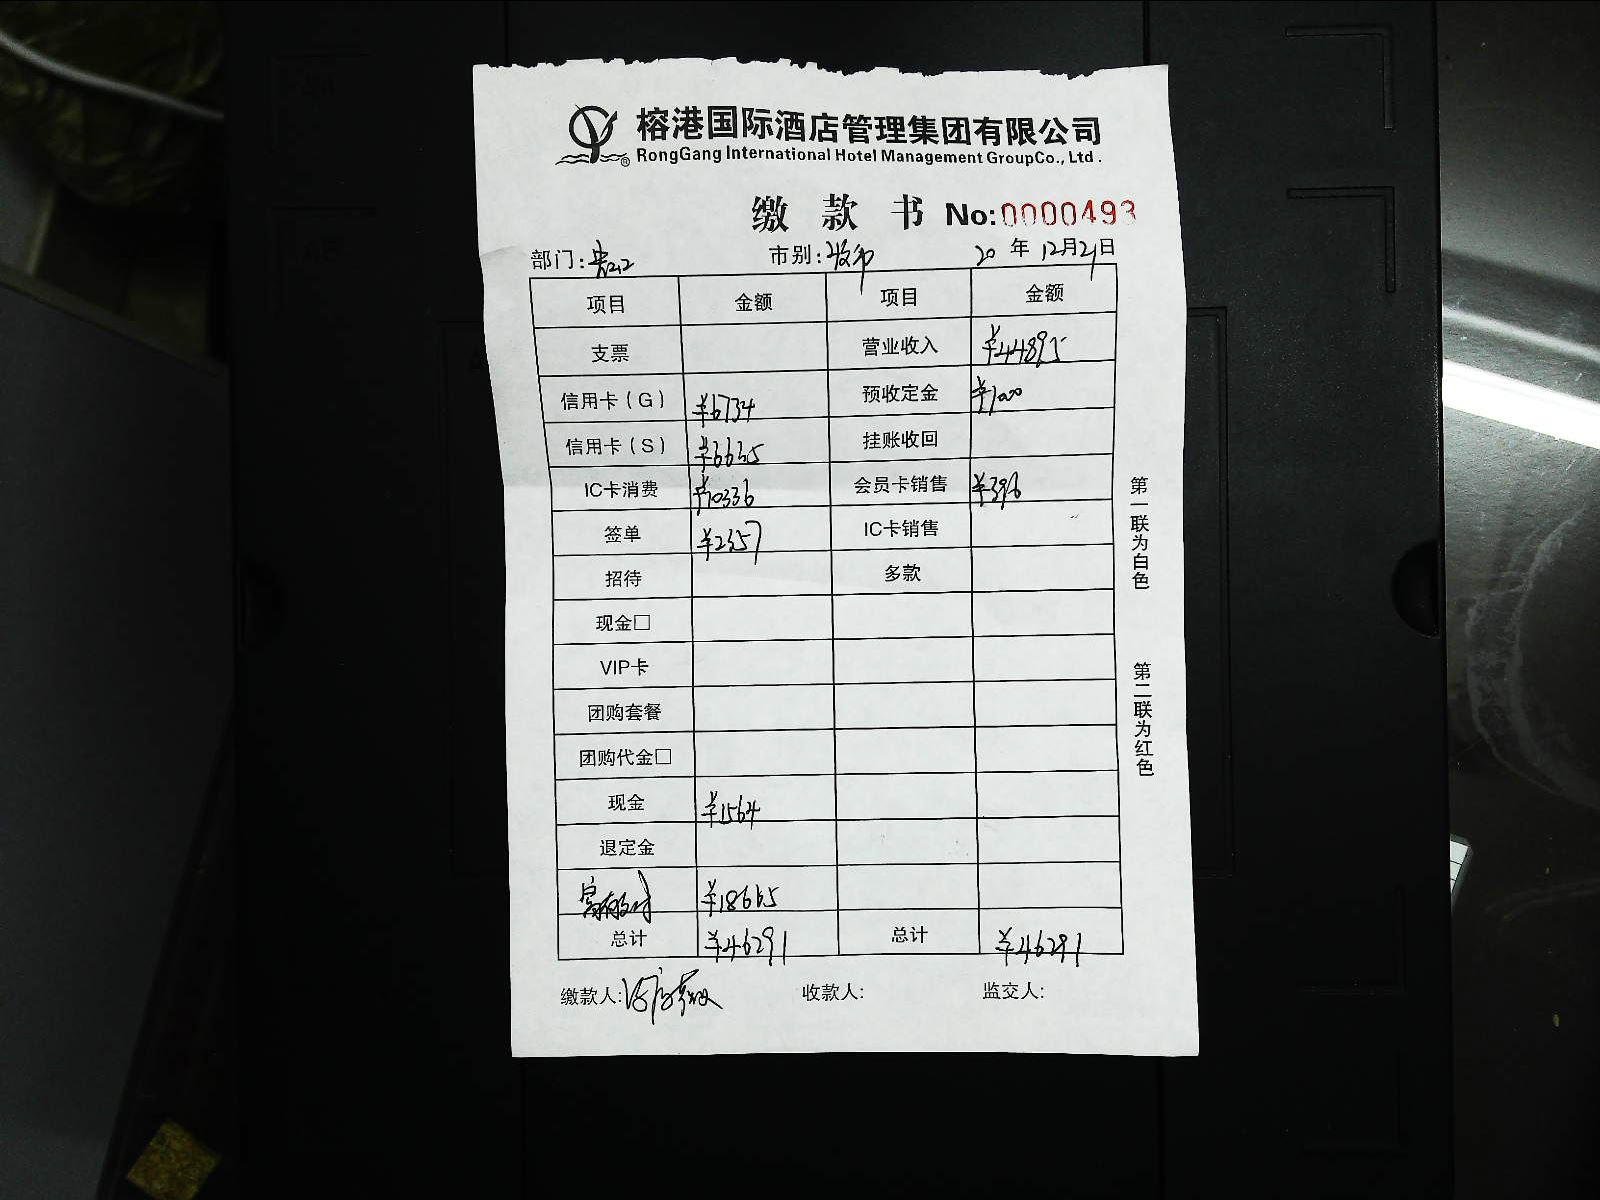 榕港国际酒店管理集团有限公司
RongGang International Hotel Management GroupCo., Ltd.
缴款书 No:0000493
部门: 市别: 20 年 12月21日
项目 金额 项目 金额
支票 营业收入 ¥44895
信用卡(G) ¥6734 预收定金 ¥1000
信用卡(S) ¥6635 挂账收回
IC卡消费 ¥10336 会员卡销售 ¥396
签单 ¥2357 IC卡销售
招待 多款
现金□
VIP卡
团购套餐
团购代金□
现金 ¥1564
退定金
¥18665
总计 ¥46291 总计 ¥46291
缴款人: 收款人: 监交人:
第一联为白色
第二联为红色